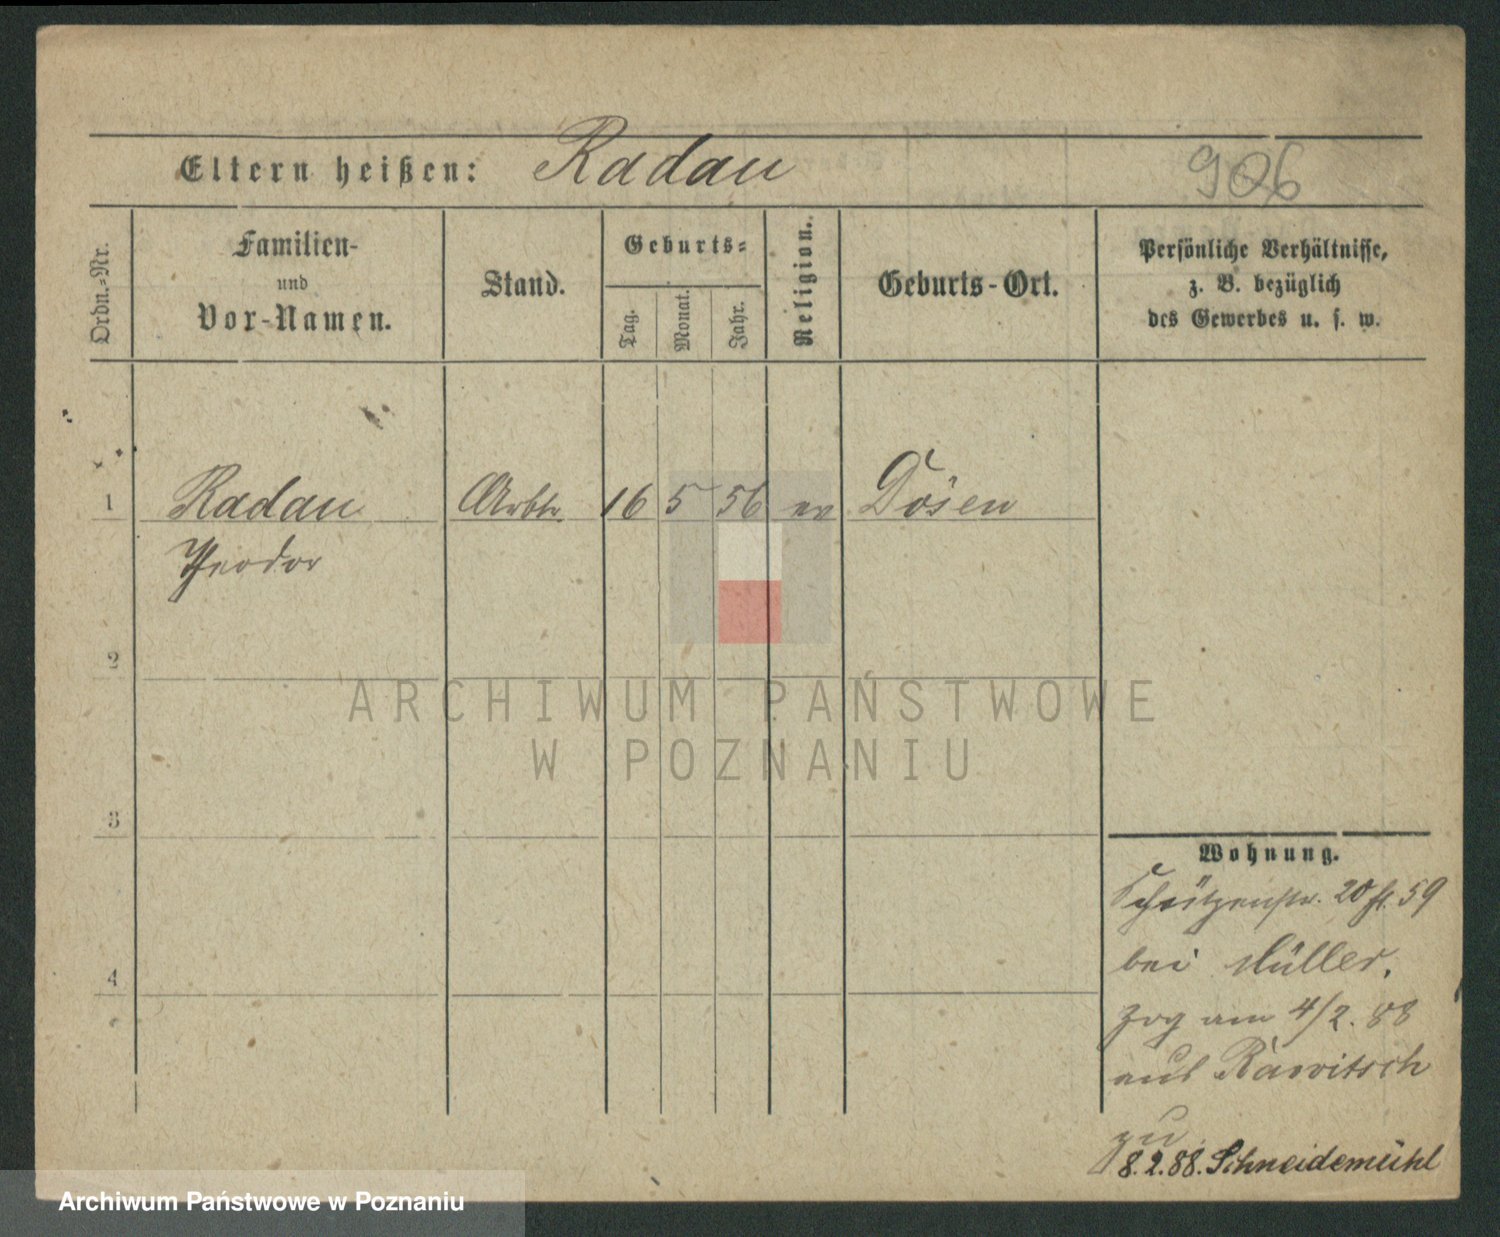 Eltern heißen: Radau
906
Ordn.-Nr.
Familien-
und
Vor-Namen.
Stand.
Geburts-
Tag.
Monat.
Jahr.
Religion.
Geburts-Ort.
Persönliche Verhältnisse,
z. B. bezüglich
des Gewerbes u. s. w.
1 Radau Arbtr. 16 5 56 ev Dösen
Theodor
2
3
4
ARCHIWUM PAŃSTWOWE
W POZNANIU
Wohnung.
Schützenstr. 20 59
bei Müller.
zog am 4/2. 88
aus Rawitsch
zu
8.2.88. Schneidemühl
Archiwum Państwowe w Poznaniu